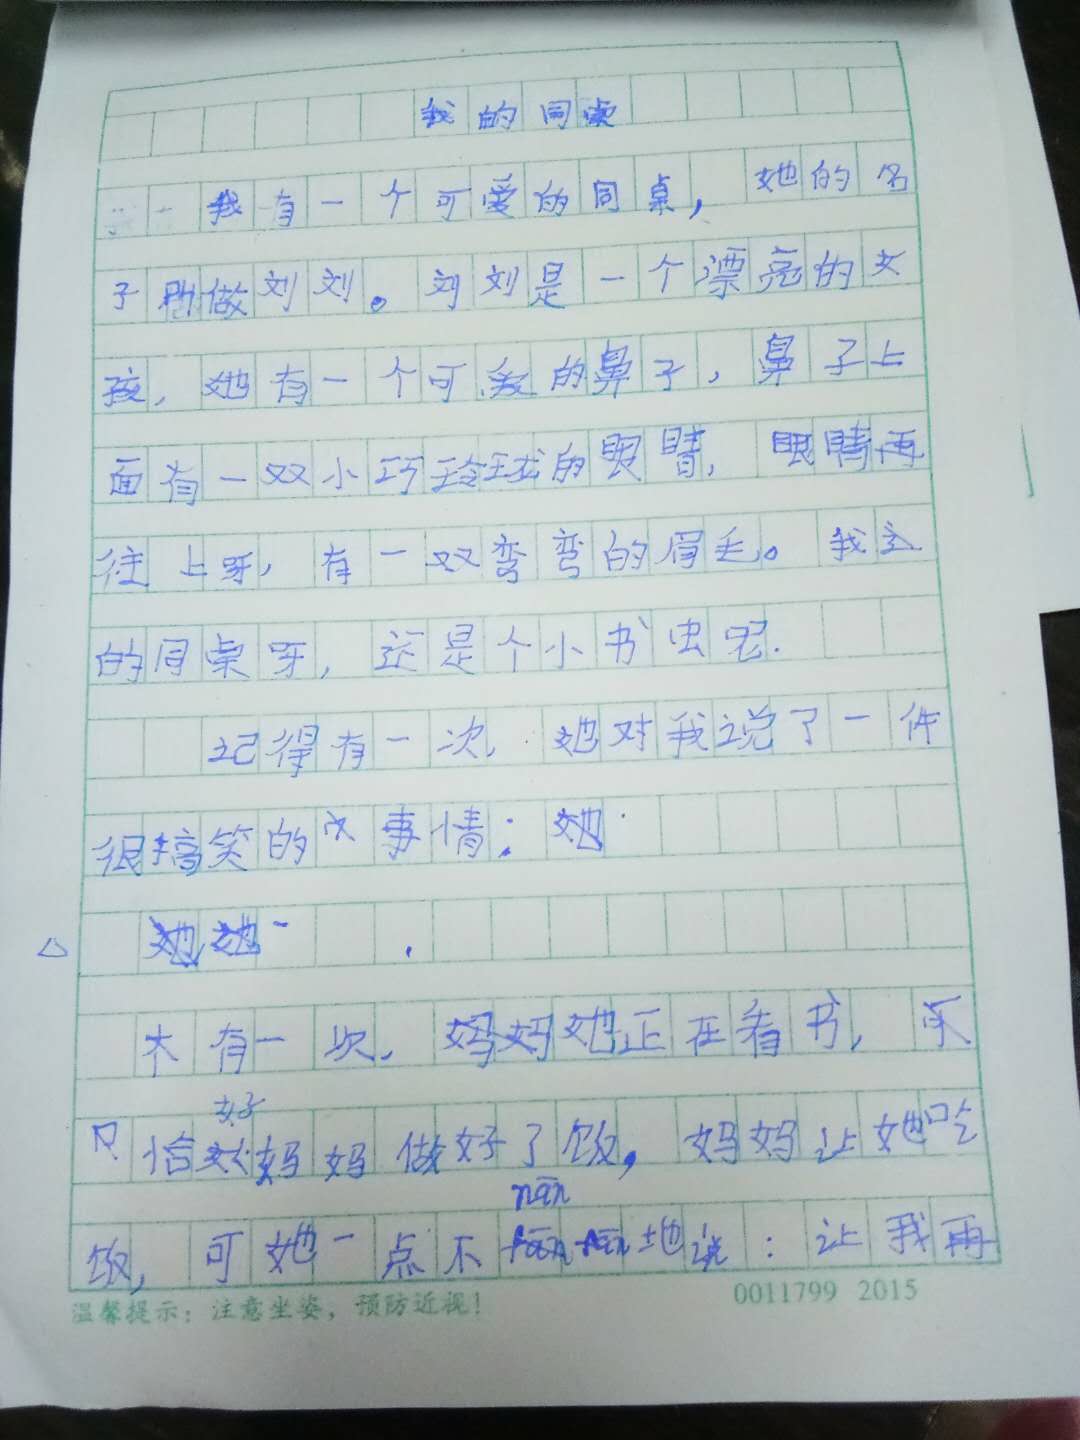 我的同桌
我有一个可爱的同桌，她的名
子叫做刘刘。刘刘是一个漂亮的女
孩，她有一个可爱的鼻子，鼻子上
面有一双小巧玲珑的眼睛，眼睛再
往上呀，有一双弯弯的眉毛。我这
的同桌呀，还是个小书虫呢.
记得有一次，她对我说了一件
很搞笑的事情：她
她她一
有一次，妈妈她正在看书，
好
只恰妈妈做好了饭，妈妈让她吃
nān
饭，可她一点不地说：让我再
温馨提示：注意坐姿，预防近视！
0011799 2015